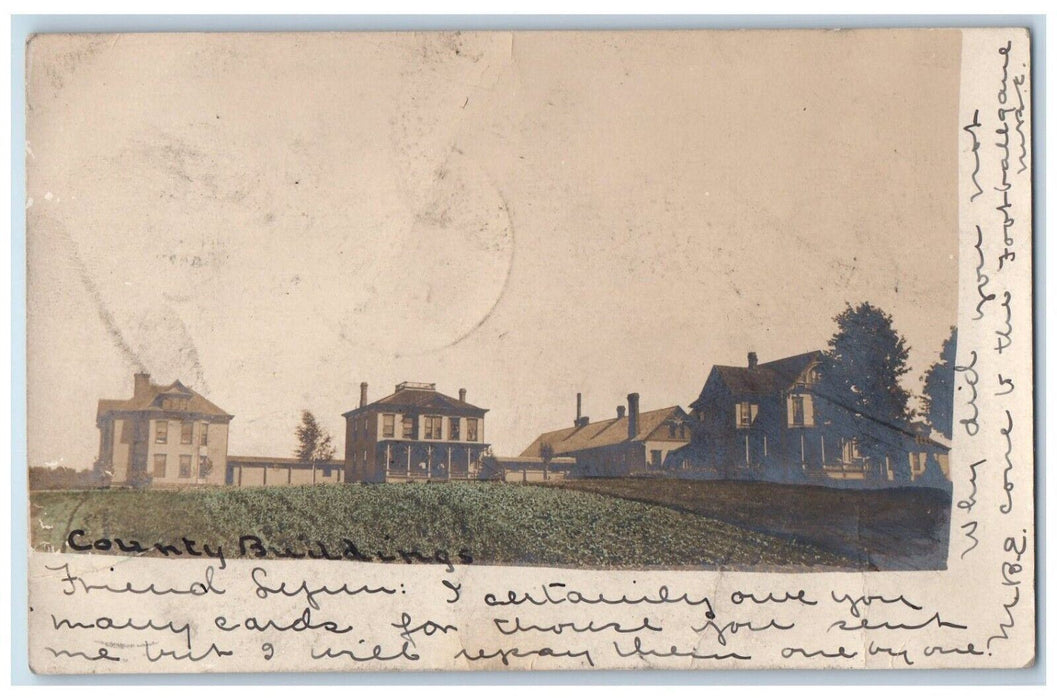 County Buildings
Friend Lynn: I certainly owe you
many cards for those you sent
me but I will repay them one by one.
Why did you not
come to the Football game